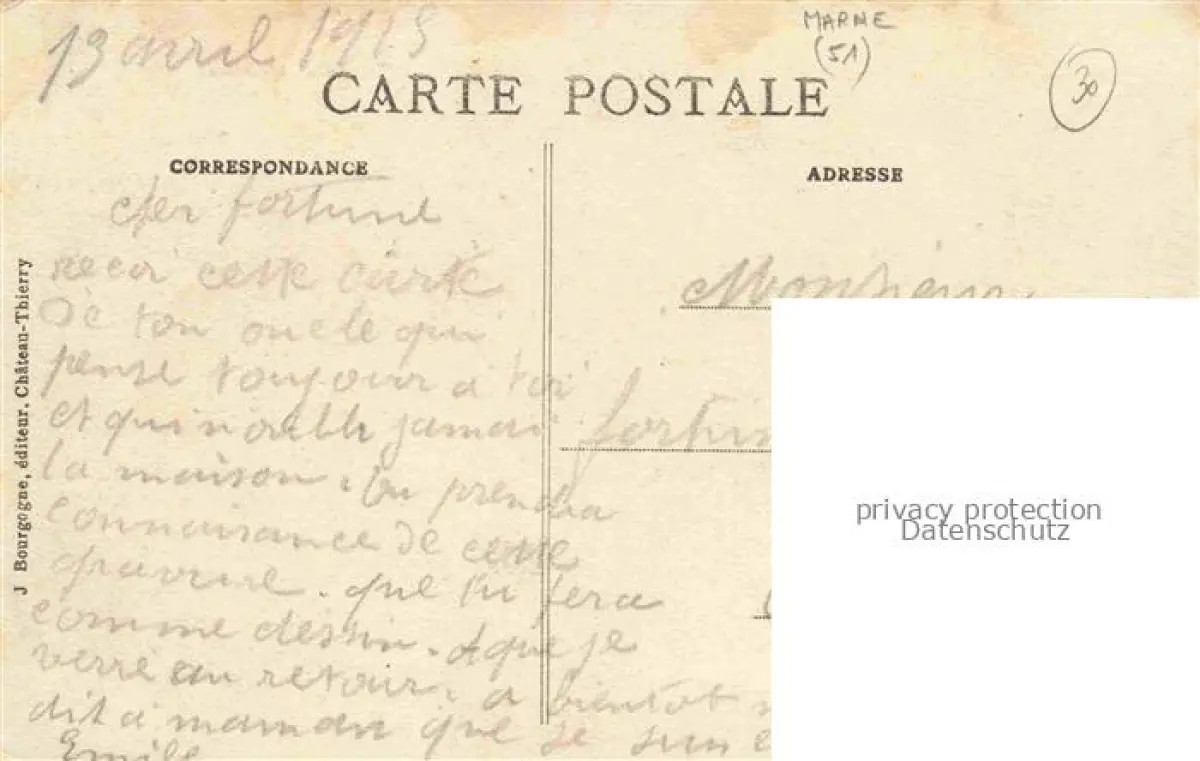 13 avril 1915
MARNE
(51)
30
CARTE POSTALE
CORRESPONDANCE
ADRESSE
J Bourgogne, éditeur. Château-Thierry
cher fortuné
recoi cette carte
de ton oncle qui
pense toujour a toi
et qui n'oubli jamai
la maison. tu prendra
connaisance de cette
gravure. que tu fera
comme dessin. que je
verré au retour. a bientot
dit a maman que je sui
Emile
Monsieur
fortun
privacy protection
Datenschutz